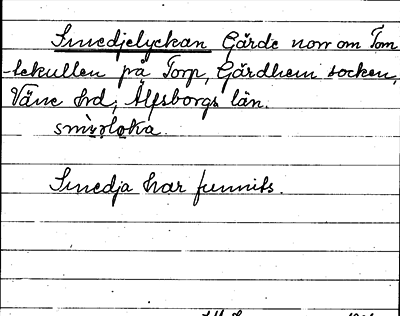 Smedjelyckan Gärde norr om Tom
tekullen på Torp, Gärdhem socken,
Väne hrd, Älfsborgs län.
Smedja har funnits.